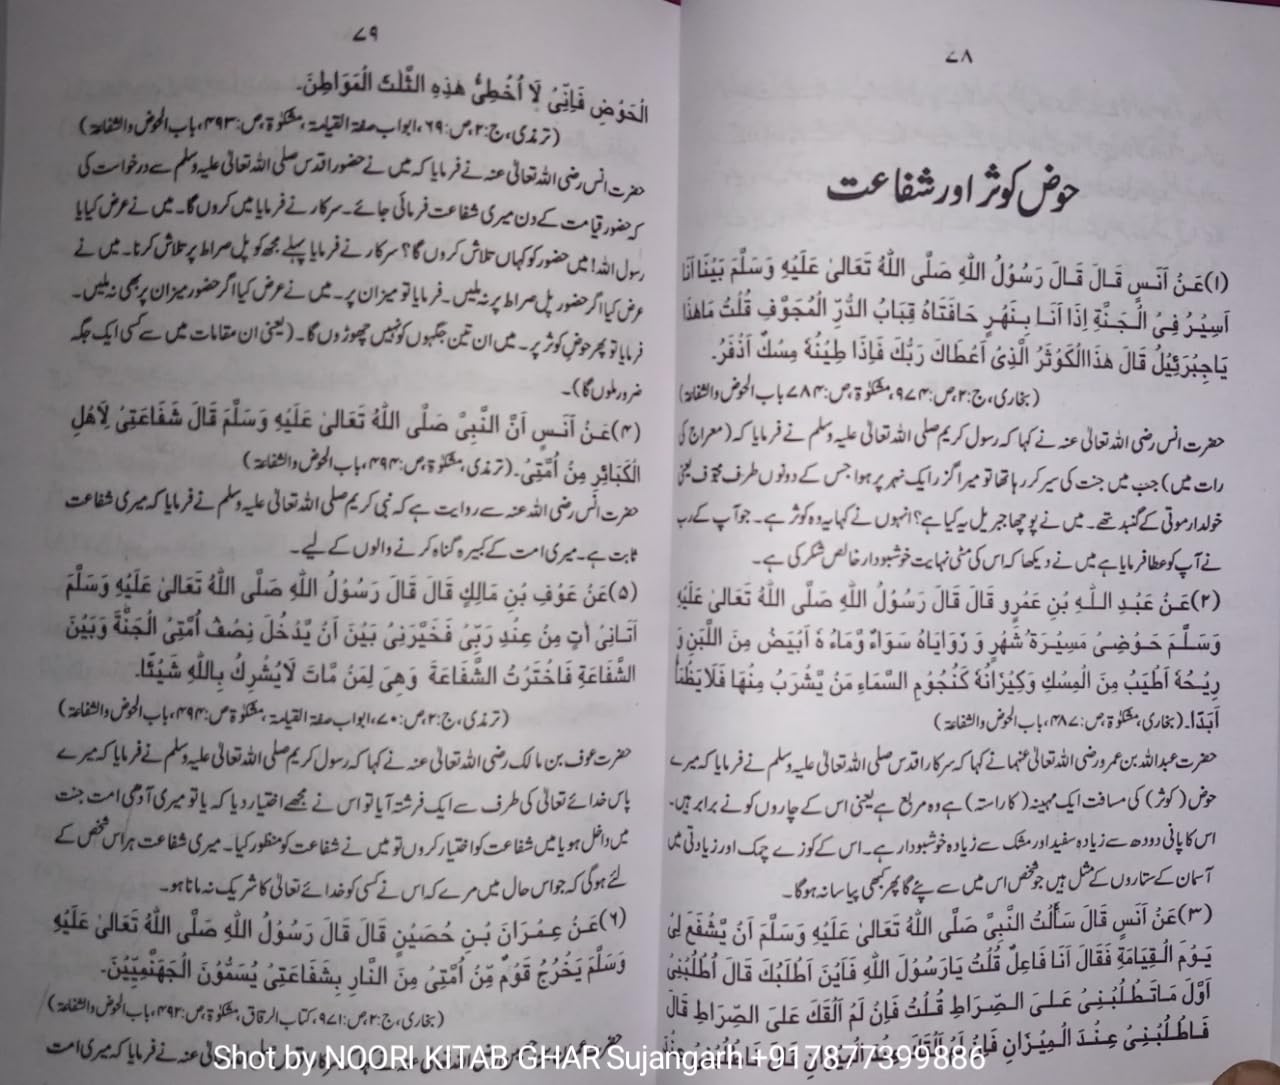 ٧٨
حوض کوثر اور شفاعت
(۱) عَنْ اَنَسٍ قَالَ قَالَ رَسُوْلُ اللّٰهِ صَلَّى اللّٰهُ تَعَالٰى عَلَيْهِ وَسَلَّمَ بَيْنَا اَنَا
اَسِيْرُ فِى الْجَنَّةِ اِذَا اَنَا بِنَهْرٍ حَافَتَاهُ قِبَابُ الدُّرِّ الْمُجَوَّفِ قُلْتُ مَاهٰذَا
يَاجِبْرَئِيْلُ قَالَ هٰذَاالْكَوْثَرُ الَّذِىْ اَعْطَاكَ رَبُّكَ فَاِذَا طِيْنُهٗ مِسْكٌ اَذْفَرُ۔
(بخاری، ج:۲، ص:۹۷۴، مشکوٰۃ، ص:۷۸۴ باب الحوض والشفاعۃ)
حضرت انس رضی اللہ تعالیٰ عنہ نے کہا کہ رسول کریم صلی اللہ تعالیٰ علیہ وسلم نے فرمایا کہ (معراج کی
رات میں) جب میں جنت کی سیر کر رہا تھا تو میرا گزر ایک نہر پر ہوا جس کے دونوں طرف مجوّف یعنی
خولدار موتی کے گنبد تھے۔ میں نے پوچھا جبریل یہ کیا ہے؟ انہوں نے کہا یہ وہ کوثر ہے۔ جو آپ کے رب
نے آپ کو عطا فرمایا ہے میں نے دیکھا کہ اس کی مٹی نہایت خوشبودار خالص مشک کی ہے۔
(۲) عَنْ عَبْدِ اللّٰهِ بْنِ عَمْرٍو قَالَ قَالَ رَسُوْلُ اللّٰهِ صَلَّى اللّٰهُ تَعَالٰى عَلَيْهِ
وَسَلَّمَ حَوْضِىْ مَسِيْرَةُ شَهْرٍ وَ زَوَايَاهُ سَوَاءٌ وَّمَاءُ هٗ اَبْيَضُ مِنَ اللَّبَنِ وَ
رِيْحُهٗ اَطْيَبُ مِنَ الْمِسْكِ وَكِيْزَانُهٗ كَنُجُوْمِ السَّمَاءِ مَنْ يَّشْرَبُ مِنْهَا فَلَا يَظْمَأُ
اَبَدًا۔ (بخاری، مشکوٰۃ، ص:۴۸۷، باب الحوض والشفاعۃ)
حضرت عبداللہ بن عمرو رضی اللہ تعالیٰ عنہما نے کہا کہ سرکار اقدس صلی اللہ تعالیٰ علیہ وسلم نے فرمایا کہ میرے
حوض (کوثر) کی مسافت ایک مہینہ (کا راستہ) ہے وہ مربع ہے یعنی اس کے چاروں کونے برابر ہیں۔
اس کا پانی دودھ سے زیادہ سفید اور مشک سے زیادہ خوشبودار ہے۔ اس کے کوزے چمک اور زیادتی میں
آسمان کے ستاروں کے مثل ہیں جو شخص اس میں سے پئے گا پھر کبھی پیاسا نہ ہوگا۔
(۳) عَنْ اَنَسٍ قَالَ سَأَلْتُ النَّبِىَّ صَلَّى اللّٰهُ تَعَالٰى عَلَيْهِ وَسَلَّمَ اَنْ يَّشْفَعَ لِىْ
يَوْمَ الْقِيَامَةِ فَقَالَ اَنَا فَاعِلٌ قُلْتُ يَارَسُوْلَ اللّٰهِ فَاَيْنَ اَطْلُبُكَ قَالَ اُطْلُبْنِىْ
اَوَّلَ مَاتَطْلُبُنِىْ عَلَى الصِّرَاطِ قُلْتُ فَاِنْ لَمْ اَلْقَكَ عَلَى الصِّرَاطِ قَالَ
فَاطْلُبْنِىْ عِنْدَ الْمِيْزَانِ
٧٩
الْحَوْضِ فَاِنِّىْ لَا اُخْطِئُ هٰذِهِ الثَّلٰثَ الْمَوَاطِنَ۔
(ترمذی، ج:۲، ص:۶۹، ابواب صفۃ القیامۃ، مشکوٰۃ، ص:۴۹۳، باب الحوض والشفاعۃ)
حضرت انس رضی اللہ تعالیٰ عنہ نے فرمایا کہ میں نے حضور اقدس صلی اللہ تعالیٰ علیہ وسلم سے درخواست کی
کہ حضور قیامت کے دن میری شفاعت فرمائی جائے۔ سرکار نے فرمایا میں کروں گا۔ میں نے عرض کیا یا
رسول اللہ! میں حضور کو کہاں تلاش کروں گا؟ سرکار نے فرمایا پہلے مجھ کو پل صراط پر تلاش کرنا۔ میں نے
عرض کیا اگر حضور پل صراط پر نہ ملیں۔ فرمایا تو میزان پر۔ میں نے عرض کیا اگر حضور میزان پر بھی نہ ملیں۔
فرمایا تو پھر حوض کوثر پر۔ میں ان تین جگہوں کو نہیں چھوڑوں گا۔ (یعنی ان مقامات میں سے کسی ایک جگہ
ضرور ملوں گا)۔
(۴) عَنْ اَنَسٍ اَنَّ النَّبِىَّ صَلَّى اللّٰهُ تَعَالٰى عَلَيْهِ وَسَلَّمَ قَالَ شَفَاعَتِىْ لِاَهْلِ
الْكَبَائِرِ مِنْ اُمَّتِىْ۔ (ترمذی، مشکوٰۃ، ص:۴۹۴، باب الحوض والشفاعۃ)
حضرت انس رضی اللہ عنہ سے روایت ہے کہ نبی کریم صلی اللہ تعالیٰ علیہ وسلم نے فرمایا کہ میری شفاعت
ثابت ہے۔ میری امت کے کبیرہ گناہ کرنے والوں کے لیے۔
(۵) عَنْ عَوْفِ بْنِ مَالِكٍ قَالَ قَالَ رَسُوْلُ اللّٰهِ صَلَّى اللّٰهُ تَعَالٰى عَلَيْهِ وَسَلَّمَ
اَتَانِىْ اٰتٍ مِنْ عِنْدِ رَبِّىْ فَخَيَّرَنِىْ بَيْنَ اَنْ يَّدْخُلَ نِصْفُ اُمَّتِى الْجَنَّةَ وَبَيْنَ
الشَّفَاعَةِ فَاخْتَرْتُ الشَّفَاعَةَ وَهِىَ لِمَنْ مَّاتَ لَايُشْرِكُ بِاللّٰهِ شَيْئًا۔
(ترمذی، ج:۲، ص:۷۰، ابواب صفۃ القیامۃ، مشکوٰۃ ص:۴۹۴، باب الحوض والشفاعۃ)
حضرت عوف بن مالک رضی اللہ تعالیٰ عنہ نے کہا کہ رسول کریم صلی اللہ تعالیٰ علیہ وسلم نے فرمایا کہ میرے
پاس خدائے تعالیٰ کی طرف سے ایک فرشتہ آیا تو اس نے مجھے اختیار دیا کہ یا تو میری آدھی امت جنت
میں داخل ہو یا میں شفاعت کو اختیار کروں تو میں نے شفاعت کو منظور کیا۔ میری شفاعت ہر اس شخص کے
لئے ہوگی کہ جو اس حال میں مرے کہ اس نے کسی کو خدائے تعالیٰ کا شریک نہ مانا ہو۔
(۶) عَنْ عِمْرَانَ بْنِ حُصَيْنٍ قَالَ قَالَ رَسُوْلُ اللّٰهِ صَلَّى اللّٰهُ تَعَالٰى عَلَيْهِ
وَسَلَّمَ يَخْرُجُ قَوْمٌ مِّنْ اُمَّتِىْ مِنَ النَّارِ بِشَفَاعَتِىْ يُسَمَّوْنَ الْجَهَنَّمِيِّيْنَ۔
(بخاری، ج:۲، ص:۹۷۱، کتاب الرقاق، مشکوٰۃ، ص:۴۹۲، باب الحوض والشفاعۃ)
عنہ نے فرمایا کہ میری امت
Shot by NOORI KITAB GHAR Sujangarh +917877399886